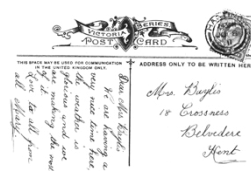 VICTORIA SERIES
POST CARD
THIS SPACE MAY BE USED FOR COMMUNICATION
IN THE UNITED KINGDOM ONLY.
ADDRESS ONLY TO BE WRITTEN HERE
Dear Mrs Baylis
We are having a
very nice time here,
the weather is
glorious and we
are making the most
of it.
Love to all from
all Mary
Mrs. Baylis
18 Crossness
Belvedere
Kent